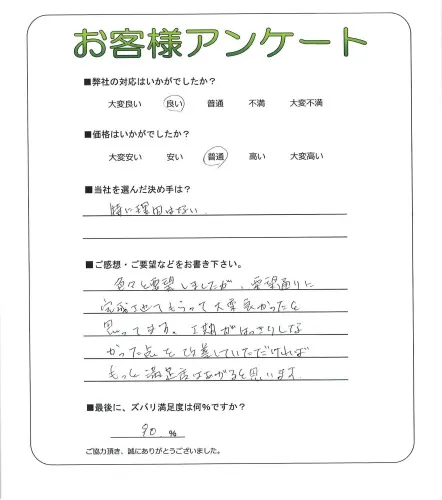 お客様アンケート
■弊社の対応はいかがでしたか?
大変良い 良い 普通 不満 大変不満
■価格はいかがでしたか?
大変安い 安い 普通 高い 大変高い
■当社を選んだ決め手は?
特に理由はない
■ご感想・ご要望などをお書き下さい。
色々と要望しましたが、要望通りに
完成させてもらって大変良かったと
思ってます。工期がはっきりしな
かった点を改善していただければ
もっと満足度はあがると思います
■最後に、ズバリ満足度は何%ですか?
90 %
ご協力頂き、誠にありがとうございました。